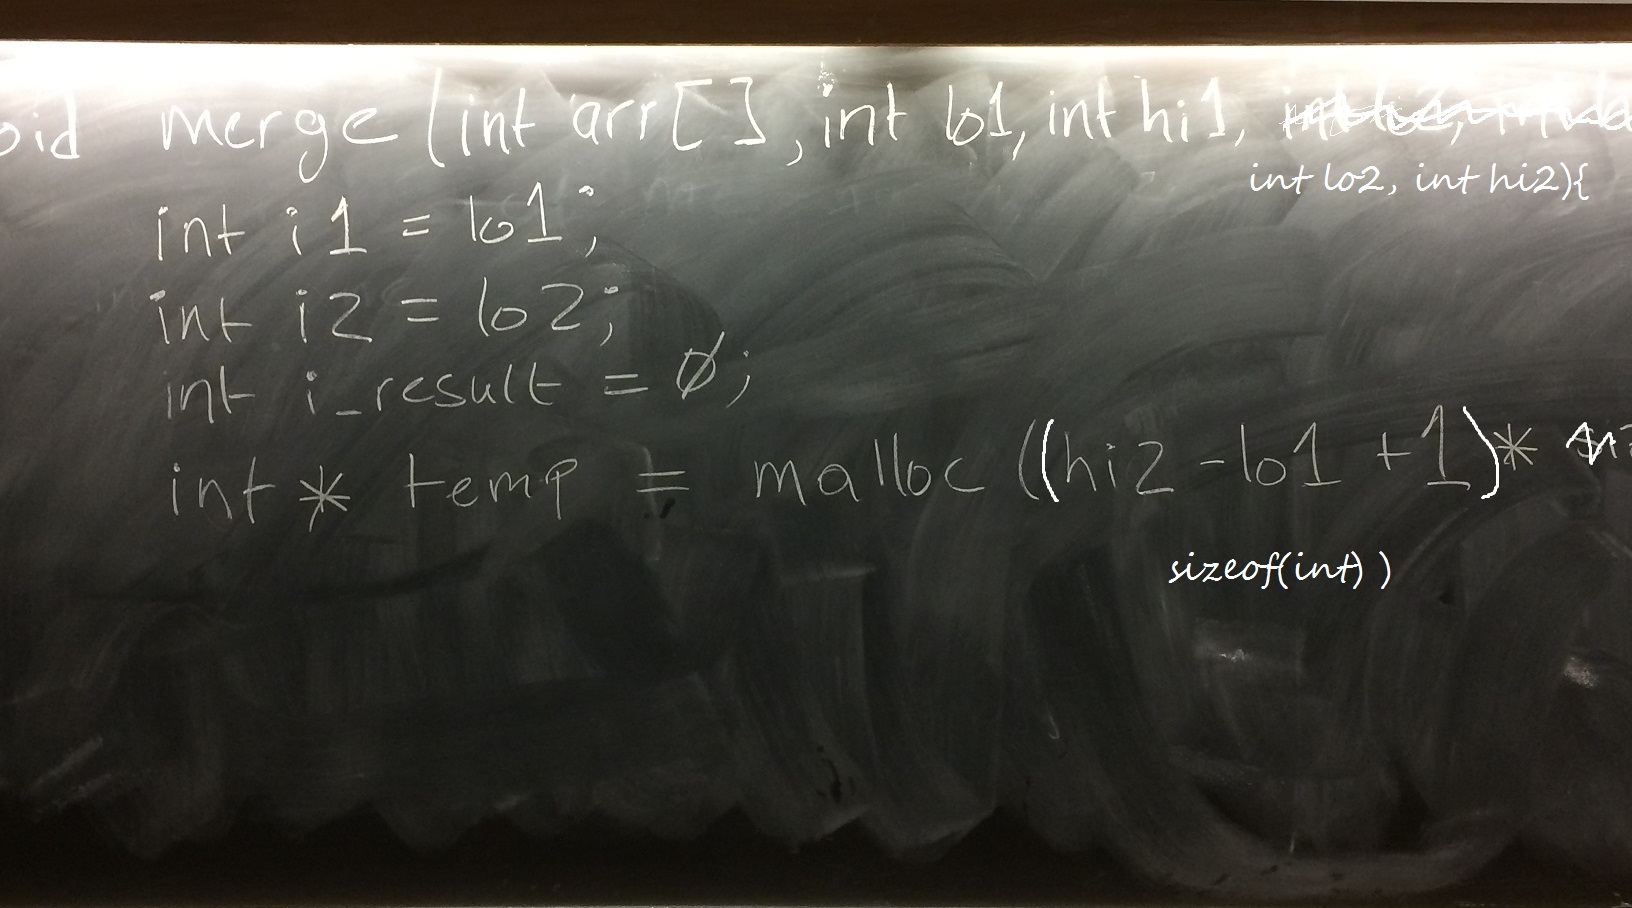 oid merge (int arr[], int lo1, int hi1,
int lo2, int hi2){
int i1 = lo1;
int i2 = lo2;
int i_result = 0;
int * temp = malloc ((hi2 - lo1 + 1) *
sizeof(int) )